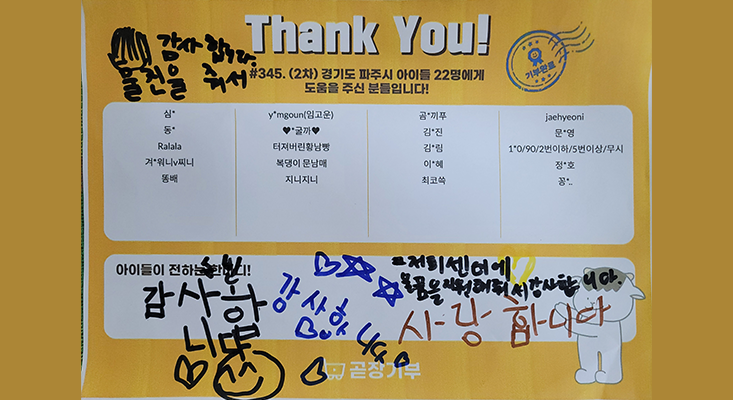 Thank You!
감사합니다.
물건을 줘서
#345. (2차) 경기도 파주시 아이들 22명에게
도움을 주신 분들입니다!
기부완료
심* y*mgoun(임고운) 곰*끼푸 jaehyeoni
동* ♥*굴까♥ 김*진 문*영
Ralala 터져버린황남빵 김*림 1*0/90/2번이하/5번이상/무시
겨*워니v찌니 복댕이 문남매 이*혜 정*호
똥배 지니지니 최코쓱 꽁*..
아이들이 전하는 한마디!
감사합
니다
감사합
니다
물품을 지원해줘서 감사합니다.
사랑합니다
곧장기부